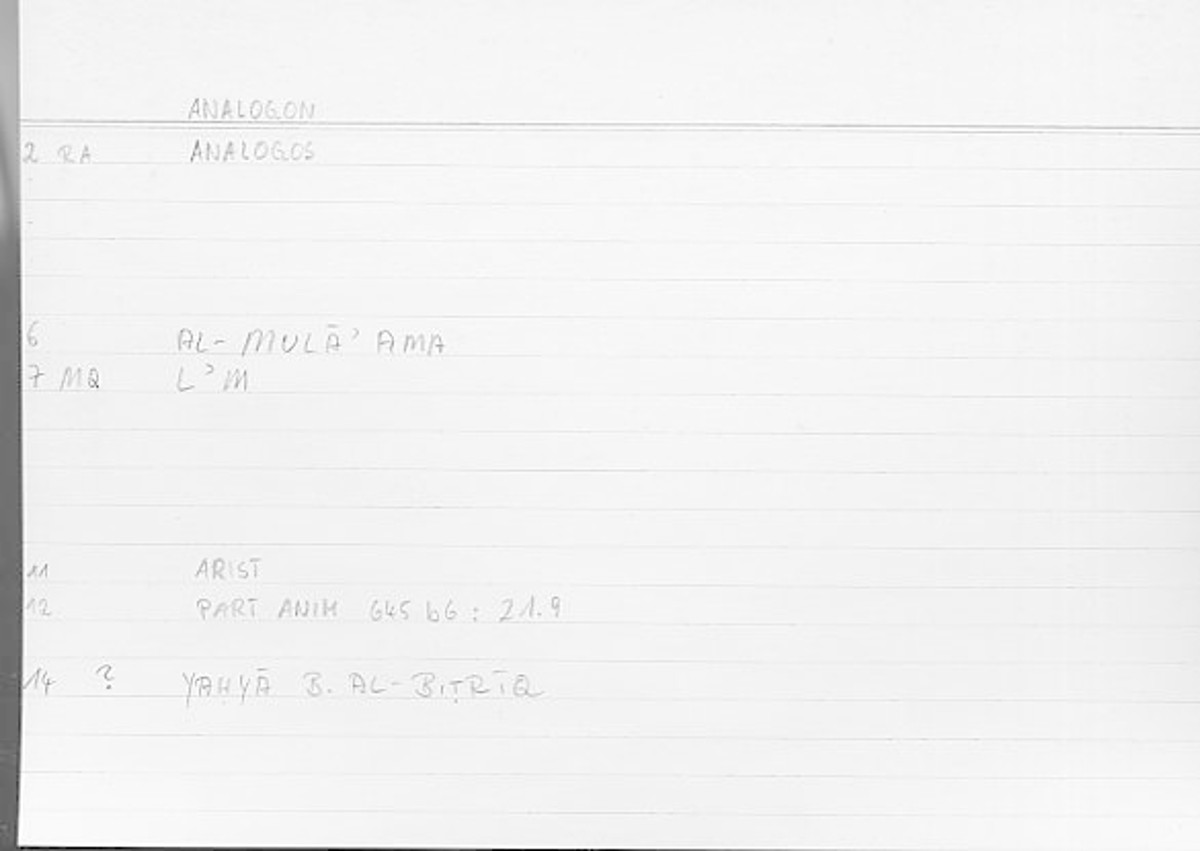 ANALOGON
2 RA ANALOGOS
6 AL-MULĀʾAMA
7 MQ LʾM
11 ARIST
12 PART ANIM 645 b6 : 21.9
14 ? YAḤYĀ B. AL-BIṬRĪQ